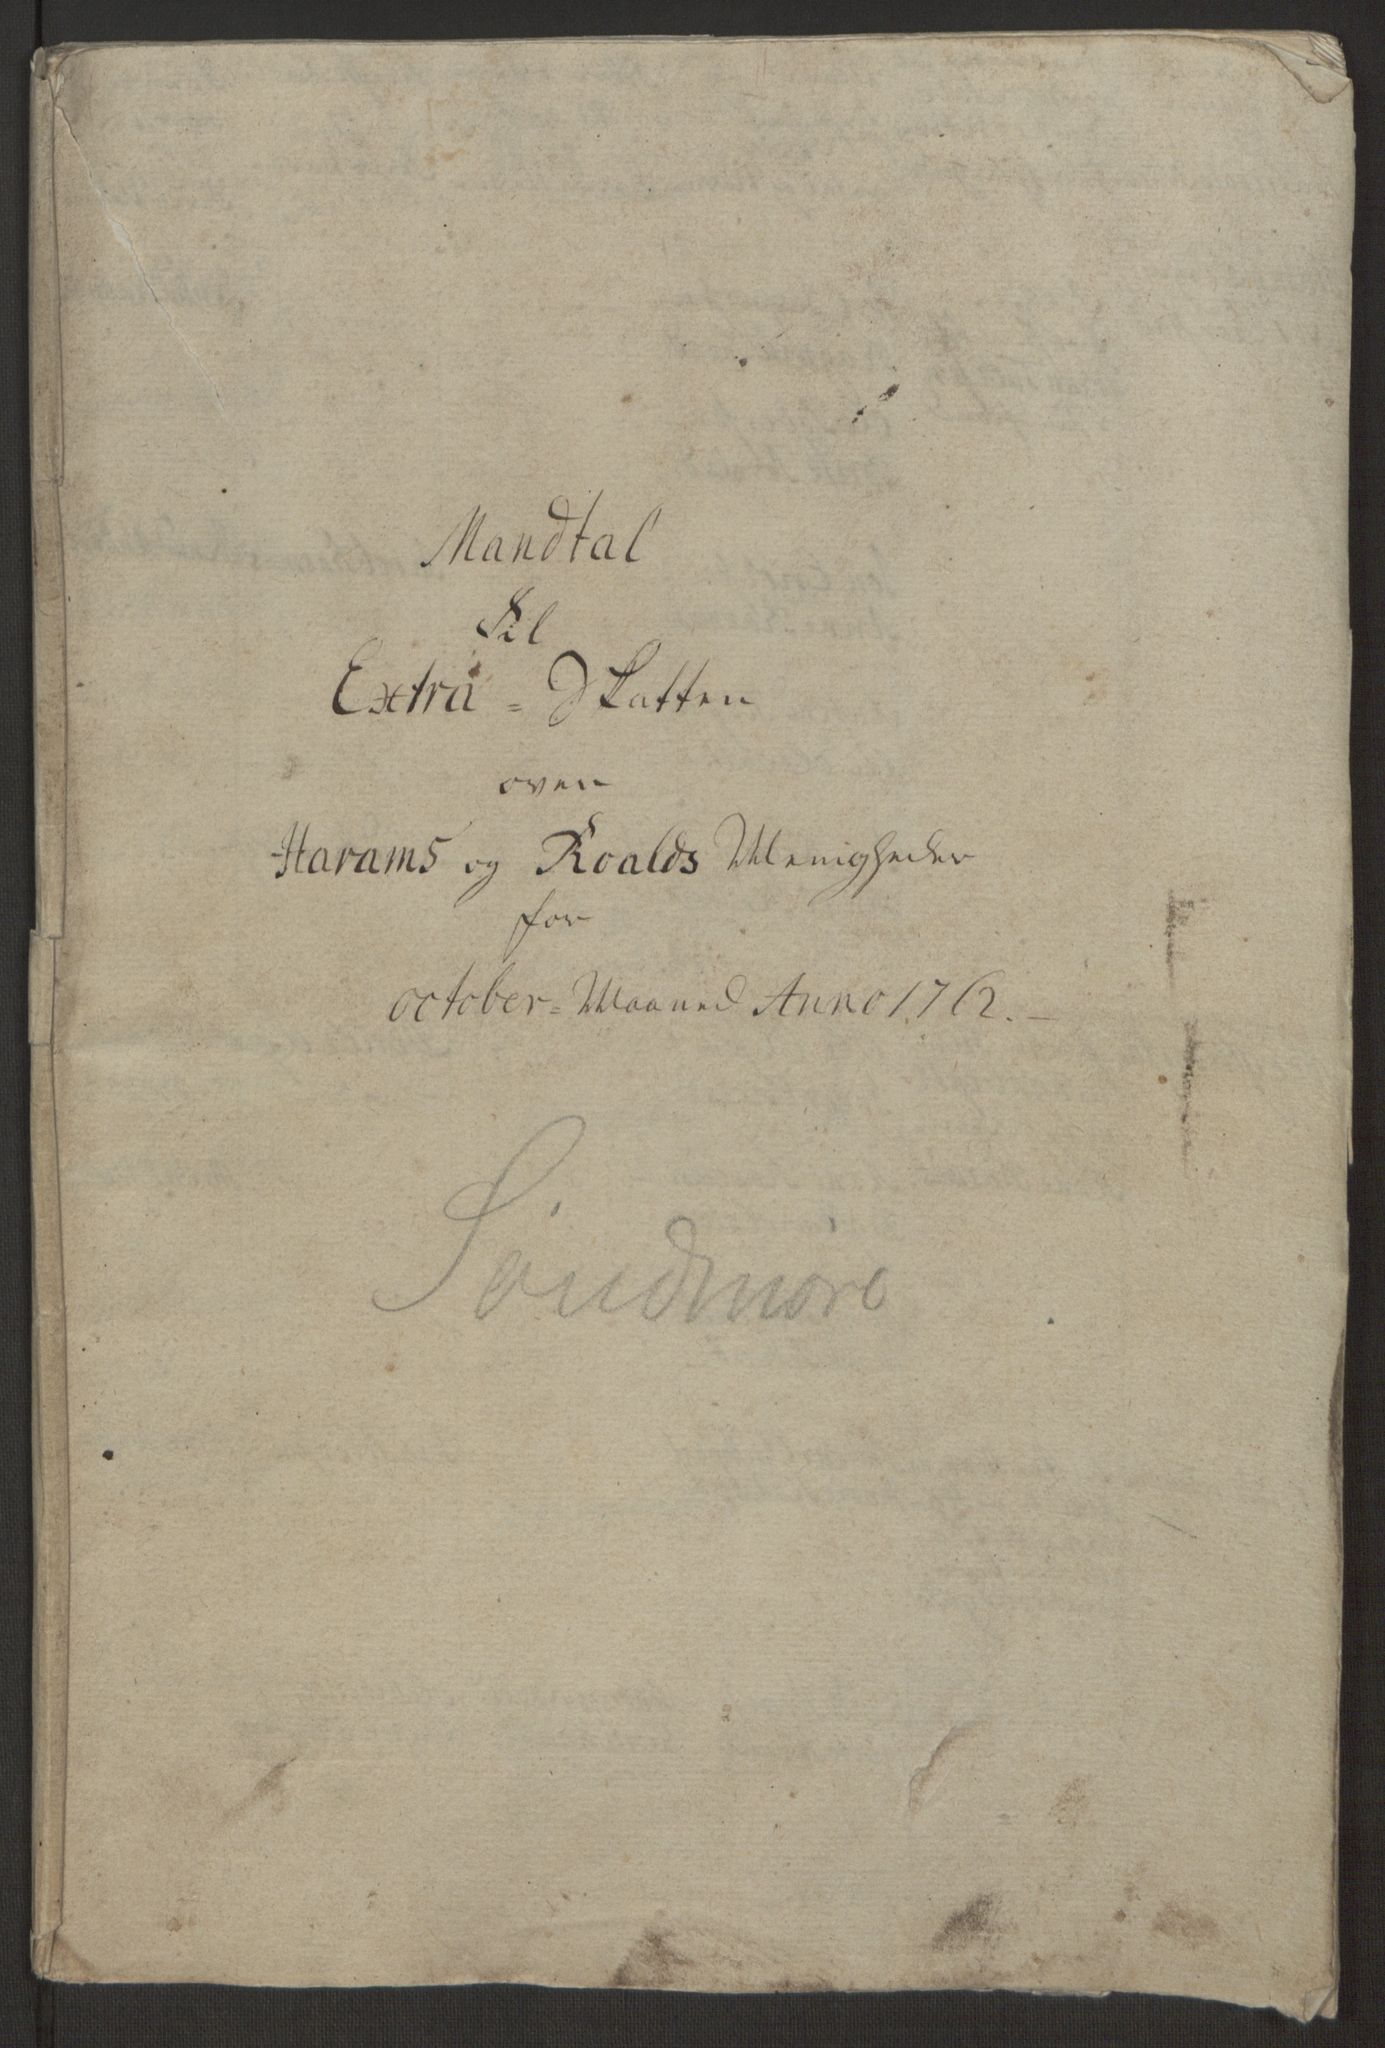 Mandtal
til
Extra = Skatten
over
Harams og Roalds Menigheder
for
October = Maaned Anno 1762. —
Söndmöre